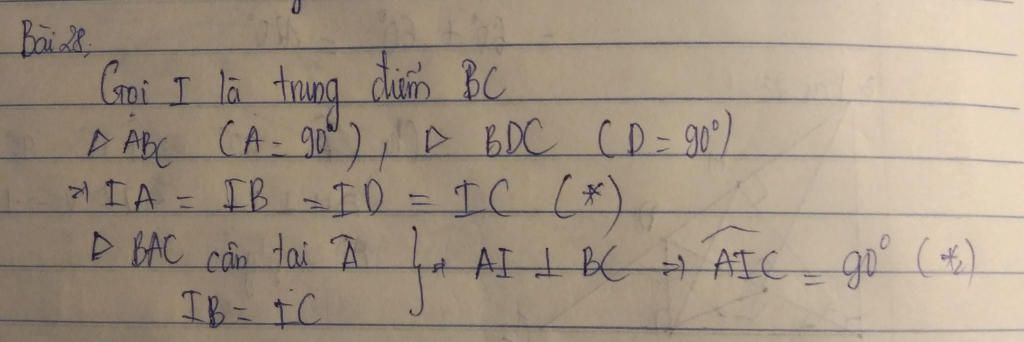 Bài 28.
Gọi I là trung điểm BC
▷ ABC (A = 90°), ▷ BDC (D = 90°)
⇒ IA = IB = ID = IC (*)
▷ BAC cân tại A } ⇒ AI ⊥ BC ⇒ AIC = 90° (*₂)
IB = IC